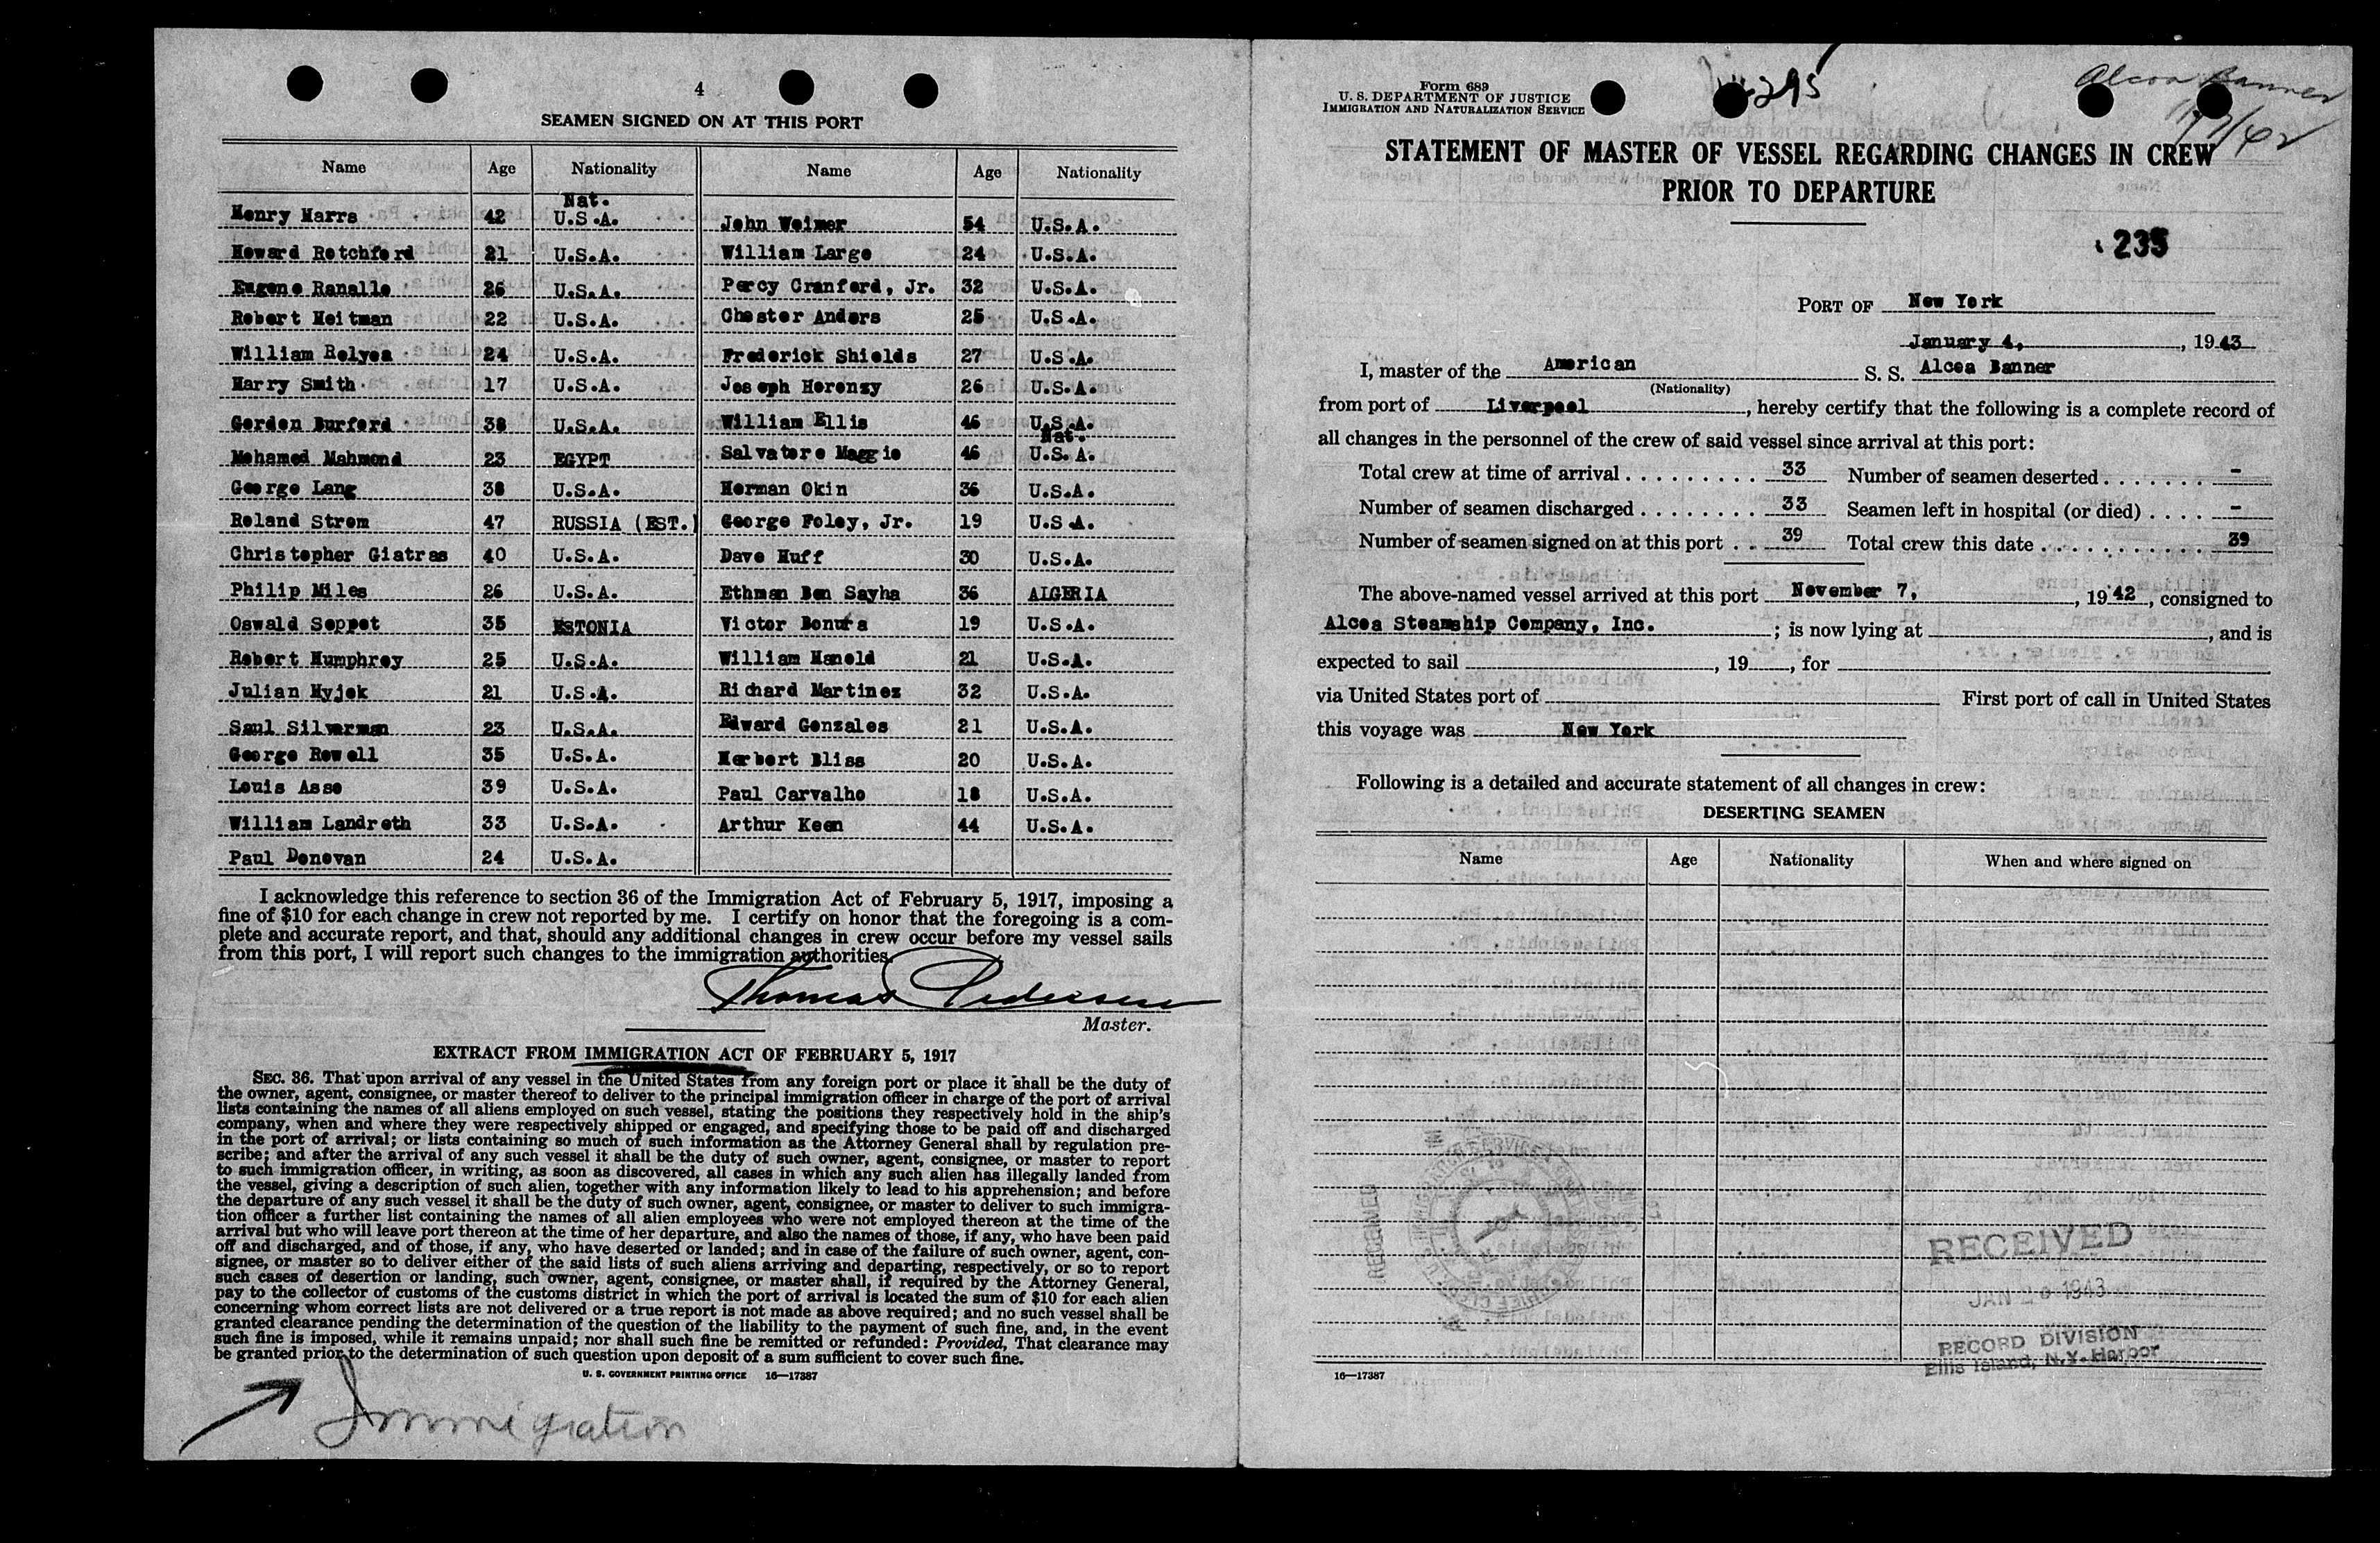 4
SEAMEN SIGNED ON AT THIS PORT
Name Age Nationality Name Age Nationality
Henry Marrs 42 Nat. U.S.A. John Weimer 54 U.S.A.
Howard Rotchford 21 U.S.A. William Large 24 U.S.A.
Eugene Ranallo 26 U.S.A. Percy Cranford, Jr. 32 U.S.A.
Robert Heitman 22 U.S.A. Chester Anders 25 U.S.A.
William Relyea 24 U.S.A. Frederick Shields 27 U.S.A.
Harry Smith 17 U.S.A. Joseph Horensy 26 U.S.A.
Gordon Burford 38 U.S.A. William Ellis 46 U.S.A.
Mohamed Mahmond 23 EGYPT Salvatore Maggio 46 Nat. U.S.A.
George Lang 38 U.S.A. Herman Okin 36 U.S.A.
Roland Strom 47 RUSSIA (EST.) George Foley, Jr. 19 U.S.A.
Christopher Giatras 40 U.S.A. Dave Huff 30 U.S.A.
Philip Miles 26 U.S.A. Ethman Ben Sayha 36 ALGERIA
Oswald Soppet 35 ESTONIA Victor Bonura 19 U.S.A.
Robert Humphrey 25 U.S.A. William Hanold 21 U.S.A.
Julian Hyjek 21 U.S.A. Richard Martinez 32 U.S.A.
Saul Silverman 23 U.S.A. Edward Gonzales 21 U.S.A.
George Rowell 35 U.S.A. Herbert Bliss 20 U.S.A.
Louis Asse 39 U.S.A. Paul Carvalho 18 U.S.A.
William Landreth 33 U.S.A. Arthur Keen 44 U.S.A.
Paul Donovan 24 U.S.A.
I acknowledge this reference to section 36 of the Immigration Act of February 5, 1917, imposing a
fine of $10 for each change in crew not reported by me. I certify on honor that the foregoing is a com-
plete and accurate report, and that, should any additional changes in crew occur before my vessel sails
from this port, I will report such changes to the immigration authorities.
Thomas Pedersen
Master.
EXTRACT FROM IMMIGRATION ACT OF FEBRUARY 5, 1917
SEC. 36. That upon arrival of any vessel in the United States from any foreign port or place it shall be the duty of
the owner, agent, consignee, or master thereof to deliver to the principal immigration officer in charge of the port of arrival
lists containing the names of all aliens employed on such vessel, stating the positions they respectively hold in the ship's
company, when and where they were respectively shipped or engaged, and specifying those to be paid off and discharged
in the port of arrival; or lists containing so much of such information as the Attorney General shall by regulation pre-
scribe; and after the arrival of any such vessel it shall be the duty of such owner, agent, consignee, or master to report
to such immigration officer, in writing, as soon as discovered, all cases in which any such alien has illegally landed from
the vessel, giving a description of such alien, together with any information likely to lead to his apprehension; and before
the departure of any such vessel it shall be the duty of such owner, agent, consignee, or master to deliver to such immigra-
tion officer a further list containing the names of all alien employees who were not employed thereon at the time of the
arrival but who will leave port thereon at the time of her departure, and also the names of those, if any, who have been paid
off and discharged, and of those, if any, who have deserted or landed; and in case of the failure of such owner, agent, con-
signee, or master so to deliver either of the said lists of such aliens arriving and departing, respectively, or so to report
such cases of desertion or landing, such owner, agent, consignee, or master shall, if required by the Attorney General,
pay to the collector of customs of the customs district in which the port of arrival is located the sum of $10 for each alien
concerning whom correct lists are not delivered or a true report is not made as above required; and no such vessel shall be
granted clearance pending the determination of the question of the liability to the payment of such fine, and, in the event
such fine is imposed, while it remains unpaid; nor shall such fine be remitted or refunded: Provided, That clearance may
be granted prior to the determination of such question upon deposit of a sum sufficient to cover such fine.
U. S. GOVERNMENT PRINTING OFFICE 16—17387
Immigration
Form 689
U. S. DEPARTMENT OF JUSTICE
IMMIGRATION AND NATURALIZATION SERVICE
295
Alcoa Banner
11/7/42
STATEMENT OF MASTER OF VESSEL REGARDING CHANGES IN CREW
PRIOR TO DEPARTURE
235
PORT OF New York
January 4, , 1943
I, master of the American S. S. Alcoa Banner
(Nationality)
from port of Liverpool, hereby certify that the following is a complete record of
all changes in the personnel of the crew of said vessel since arrival at this port:
Total crew at time of arrival . . . . . . . . . 33 Number of seamen deserted . . . . . . . -
Number of seamen discharged . . . . . . . . 33 Seamen left in hospital (or died) . . . . -
Number of seamen signed on at this port . . 39 Total crew this date . . . . . . . . . . . 39
The above-named vessel arrived at this port November 7, , 1942, consigned to
Alcoa Steamship Company, Inc. ; is now lying at , and is
expected to sail , 19 , for
via United States port of First port of call in United States
this voyage was New York
Following is a detailed and accurate statement of all changes in crew:
DESERTING SEAMEN
Name Age Nationality When and where signed on
RECEIVED
JAN 1943
RECORD DIVISION
Ellis Island, N.Y. Harbor
16—17387